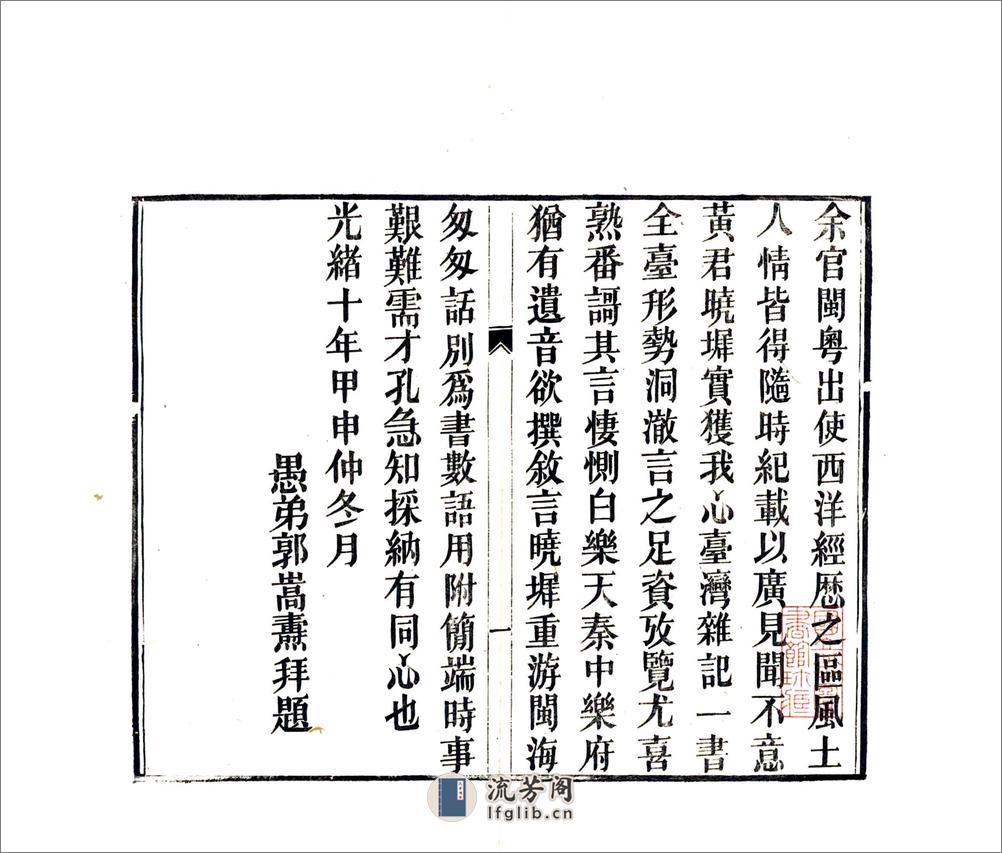 余官閩粵出使西洋經厯之區風土
人情皆得隨時紀載以廣見聞不意
黃君曉墀實獲我心臺灣雜記一書
全臺形勢洞澈言之足資攷覽尤喜
熟番謌其言悽惻白樂天秦中樂府
猶有遺音欲撰敘言曉墀重游閩海
一
匆匆話別爲書數語用附簡端時事
艱難需才孔急知採納有同心也
光緒十年甲申仲冬月
愚弟郭嵩燾拜題
流芳阁
lfglib.cn